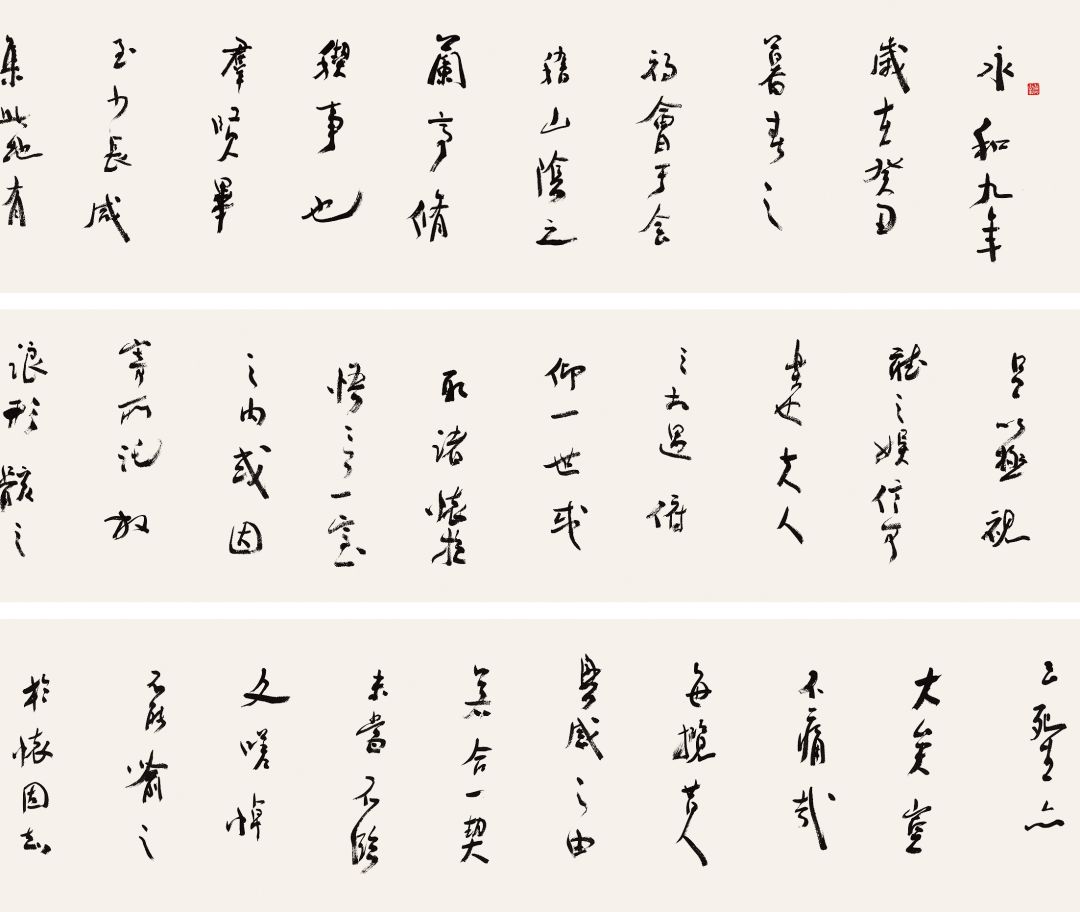 永和九年
歲在癸丑
暮春之
初會于會
稽山陰之
蘭亭脩
稧事也
羣賢畢
至少長咸
集此地有
足以極視
聽之娛信可
樂也夫人
之相遇俯
仰一世或
取諸懷抱
悟言一室
之內或因
寄所託放
浪形骸之
云死生亦
大矣豈
不痛哉
每攬昔人
興感之由
若合一契
未嘗不臨
文嗟悼
不能喻之
於懷固知